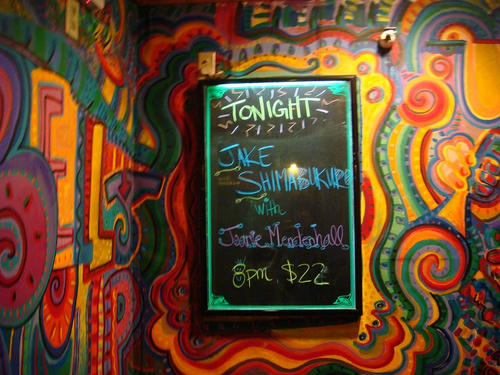 TONIGHT
JAKE
SHIMABUKURO
with
Joanie Mendenhall
8pm $22